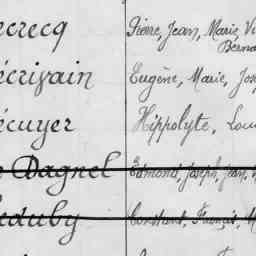 ecrecq Pierre, Jean, Marie, Vi
Berna
écrivain Eugène, Marie, Jos
écuyer Hippolyte, Lou
Dagnel Edmond, Joseph, Jean,
eduby Constant, François,